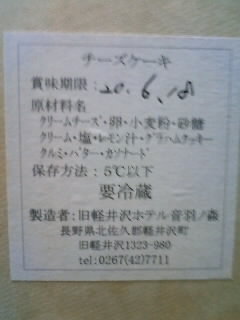 チーズケーキ
賞味期限：20.6.18
原材料名
クリームチーズ・卵・小麦粉・砂糖
クリーム・塩・レモン汁・グラハムクッキー
クルミ・バター・カソナード
保存方法：5℃以下
要冷蔵
製造者：旧軽井沢ホテル音羽ノ森
長野県北佐久郡軽井沢町
旧軽井沢1323-980
tel:0267(42)7711